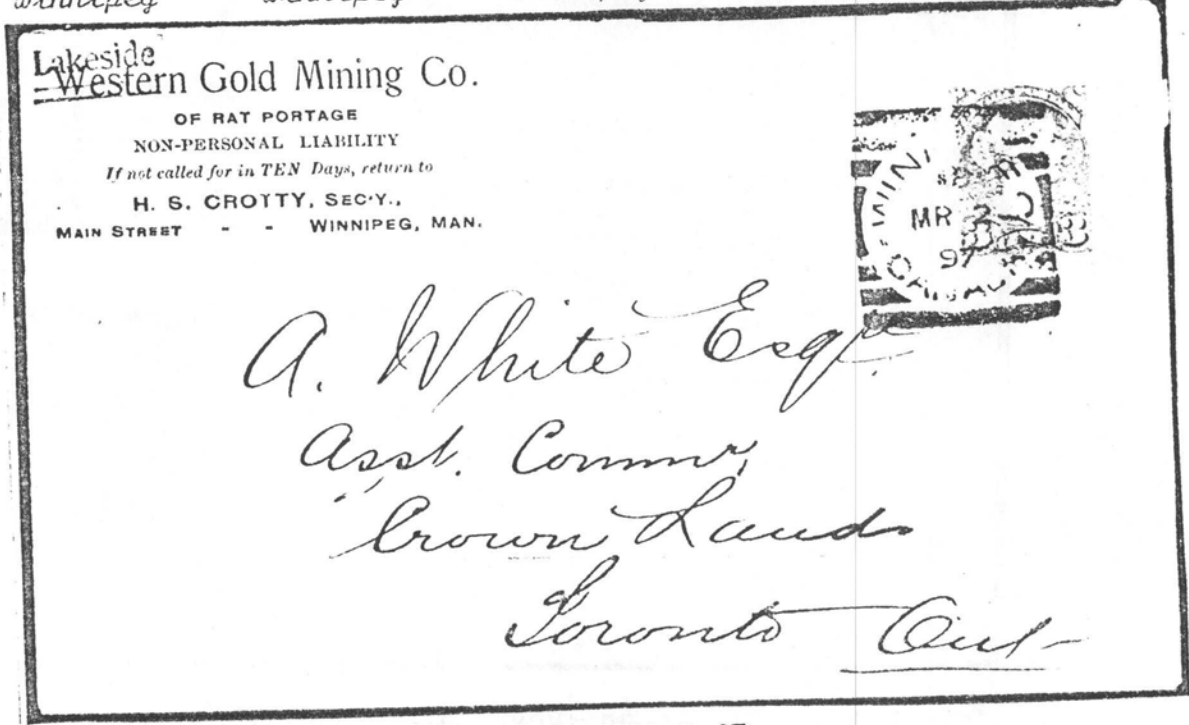 winnipeg winnipeg
Lakeside
Western Gold Mining Co.
OF RAT PORTAGE
NON-PERSONAL LIABILITY
If not called for in TEN Days, return to
H. S. CROTTY, SEC'Y.,
MAIN STREET - - WINNIPEG, MAN.
MR 2
97
CANADA
A. White Esqre
Asst. Commr,
Crown Lands
Toronto Ont